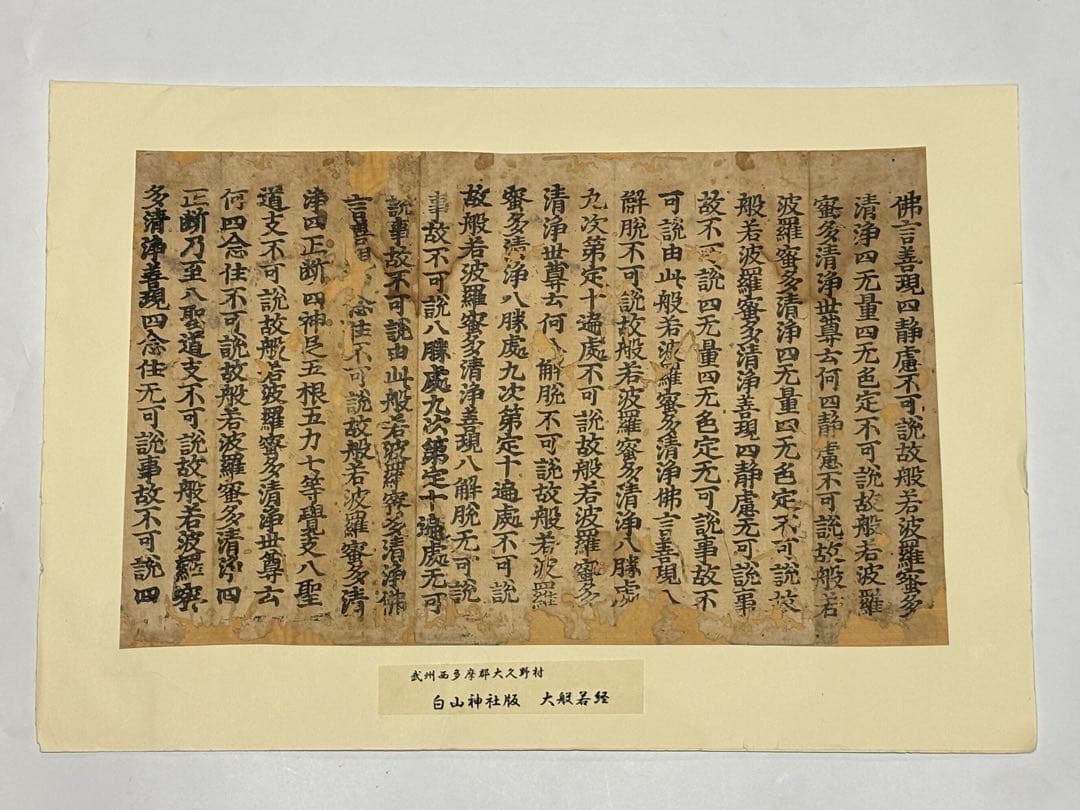 佛言善現四靜慮不可說故般若波羅蜜多
清淨四无量四无色定不可說故般若波羅
蜜多清淨世尊云何四靜慮不可說故般若
波羅蜜多清淨四无量四无色定不可說故
般若波羅蜜多清淨善現四靜慮无可說事
故不可說四无量四无色定无可說事故不
可說由此般若波羅蜜多清淨佛言善現八
解脫不可說故般若波羅蜜多清淨八勝處
九次第定十遍處不可說故般若波羅蜜多
清淨世尊云何八解脫不可說故般若波羅
蜜多清淨八勝處九次第定十遍處不可說
故般若波羅蜜多清淨善現八解脫无可說
事故不可說八勝處九次第定十遍處无可
說事故不可說由此般若波羅蜜多清淨佛
言善念住不可說故般若波羅蜜多清
淨四正斷四神足五根五力七等覺支八聖
道支不可說故般若波羅蜜多清淨世尊云
何四念住不可說故般若波羅蜜多清淨四
正斷乃至八聖道支不可說故般若波羅蜜
多清淨善現四念住无可說事故不可說四
武州西多摩郡大久野村
白山神社版 大般若経